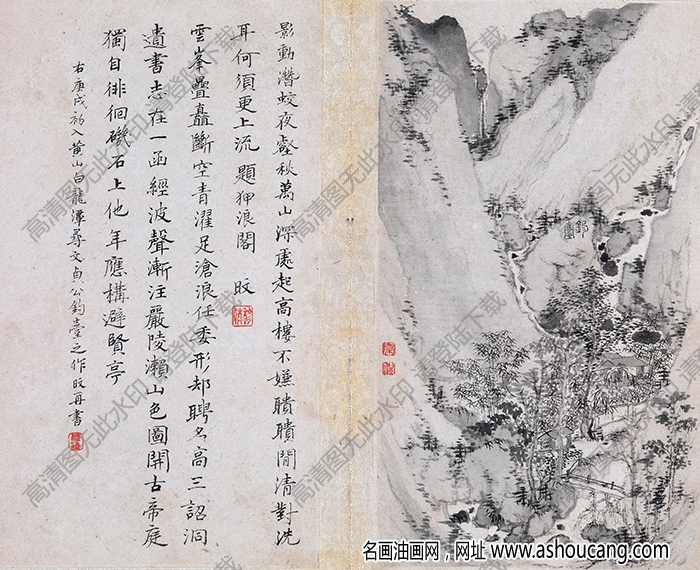 影動潛蛟夜壑秋萬山深處起高樓不嫌聵聵閒清對洗
耳何須更上流 題狎浪閣 旼
雲峯疊矗斷空青濯足滄浪任委形却聘名高三詔洞
遺書志在一函經波聲漸注嚴陵瀨山色圖開古帝庭
獨自徘徊磯石上他年應構避賢亭
右庚戌初入黃山白龍潭尋文貞公釣臺之作旼再書
高清图无此水印 请登陆下载
名画油画网，网址 www.ashoucang.com